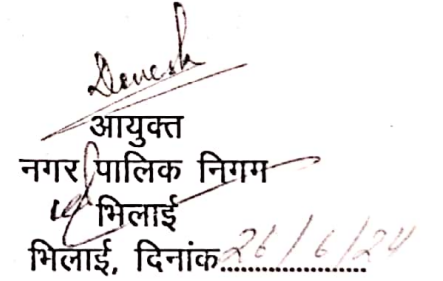 आयुक्त
नगर पालिक निगम
भिलाई
भिलाई, दिनांक 26/6/24